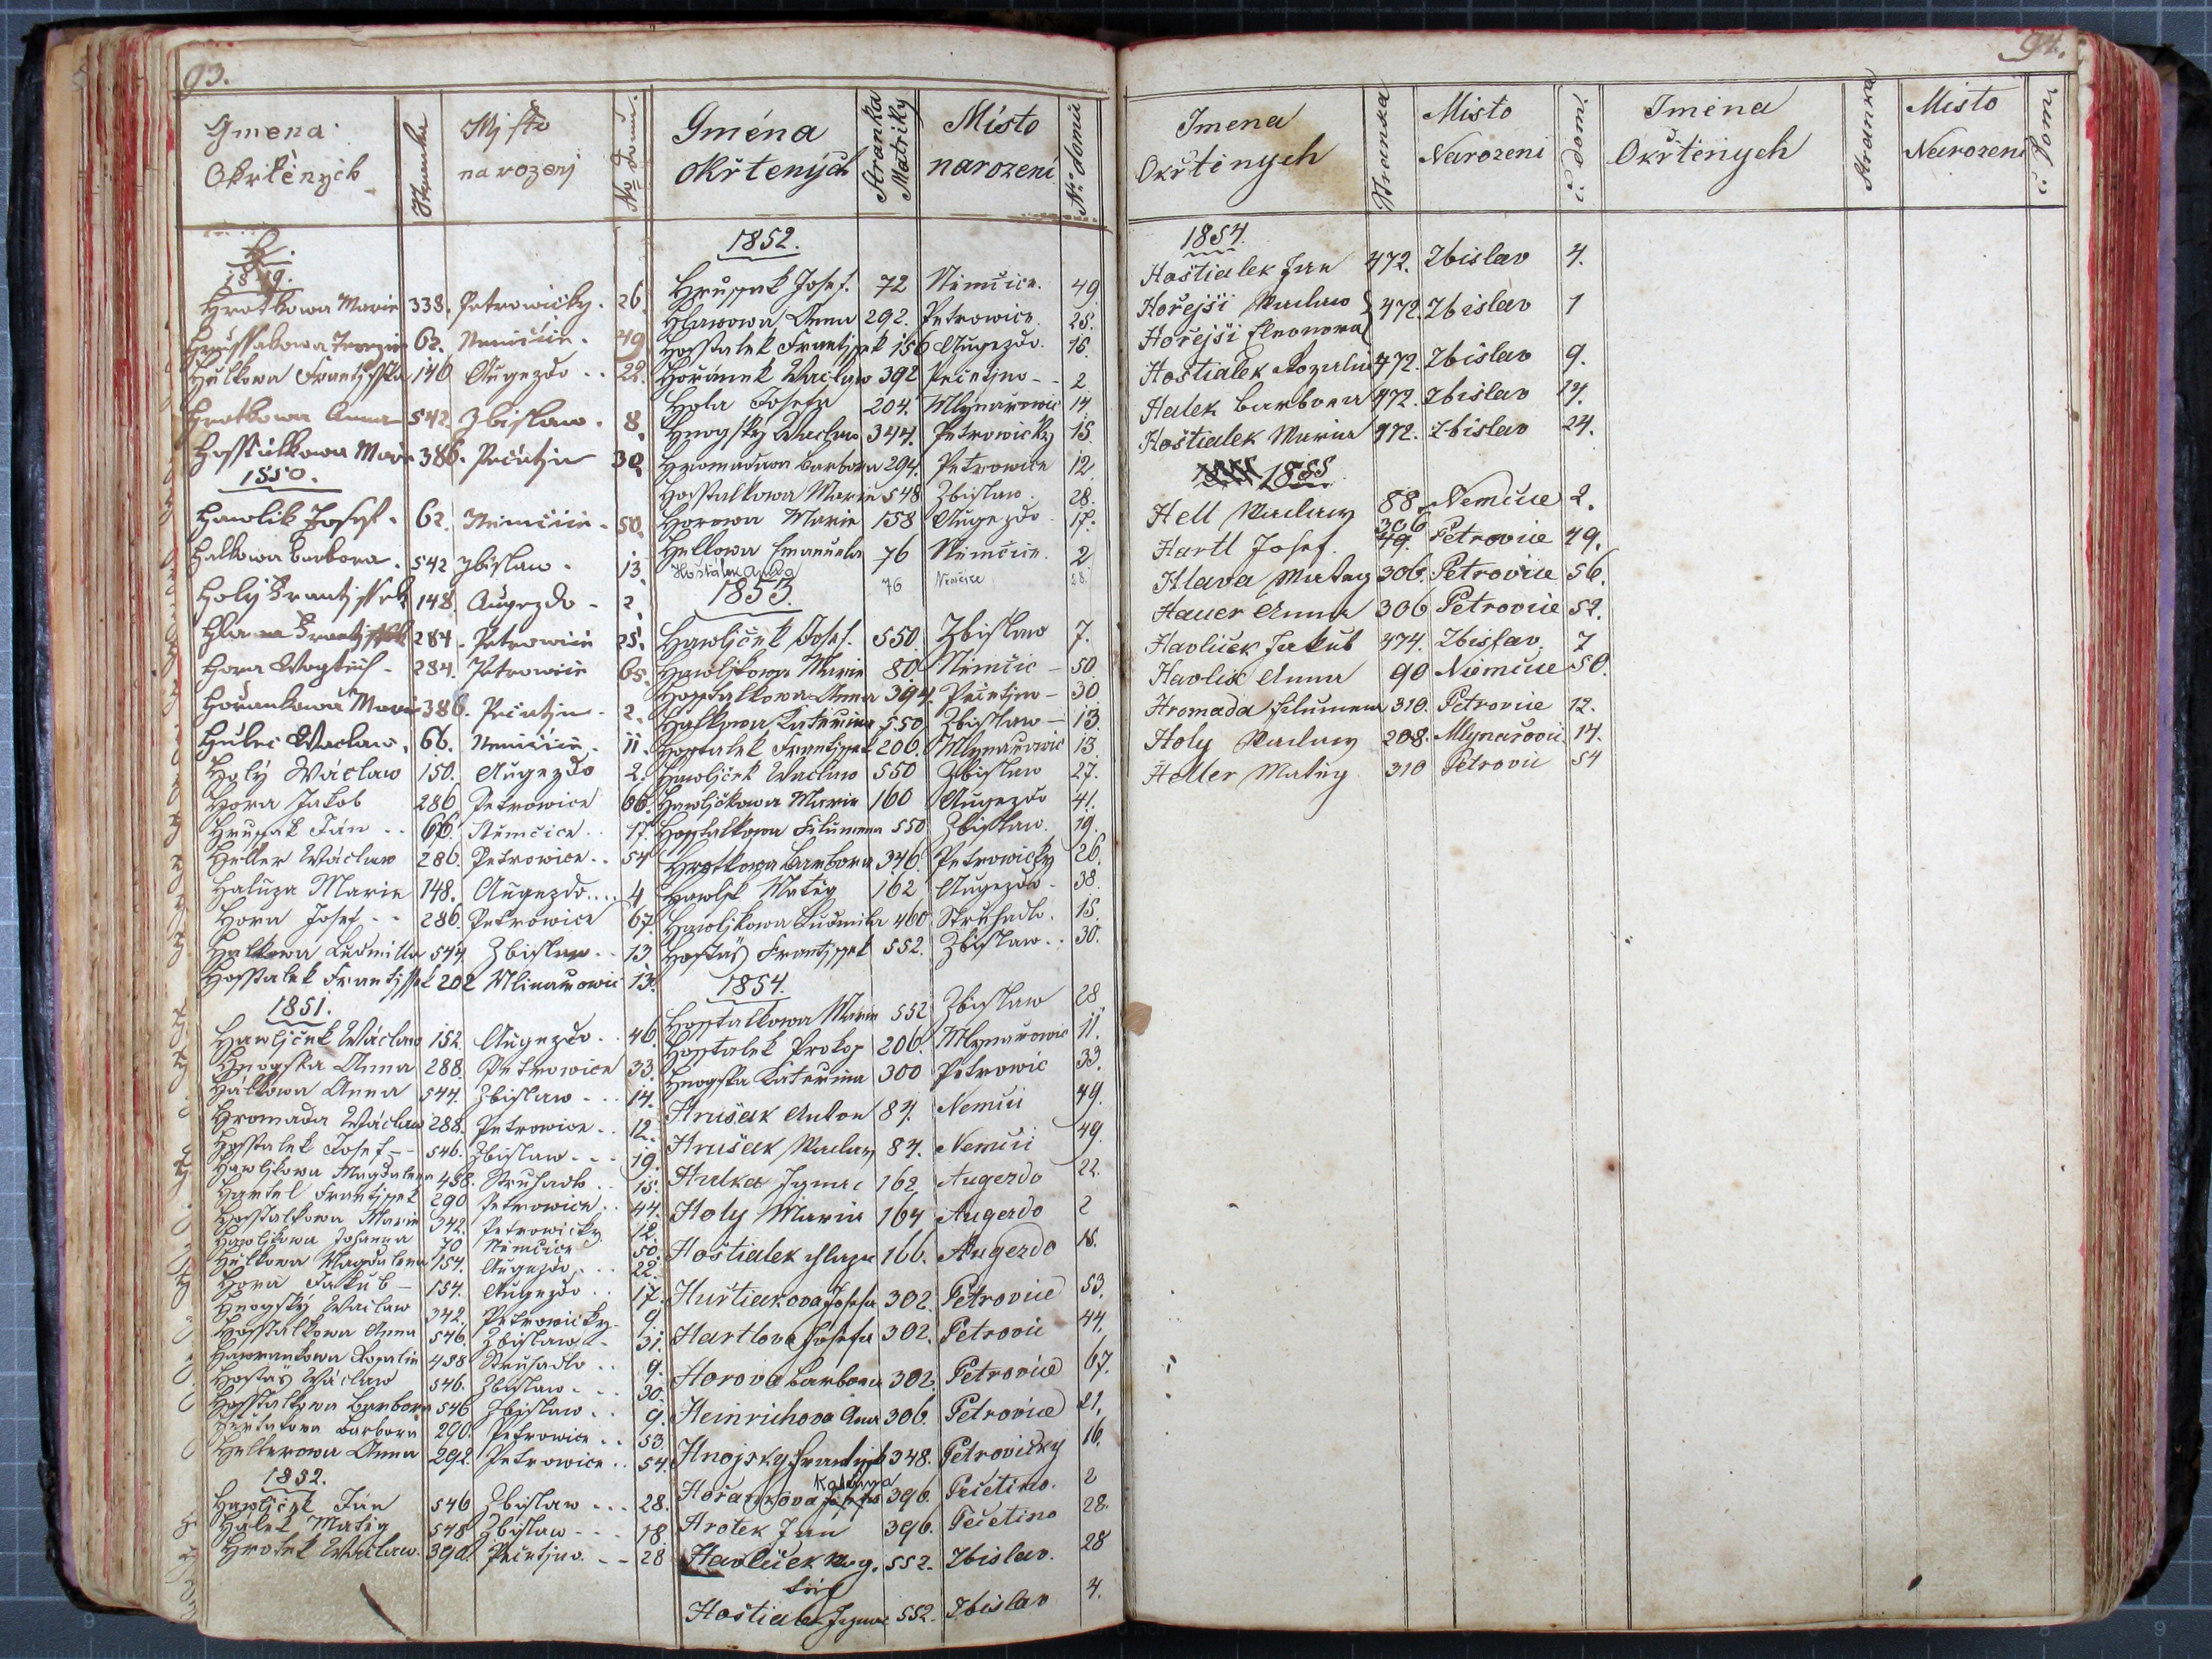 93.
Gmena Stranka Mjsto No domu.
Okrtěných narozenj
H.
1849.
Hrotkowa Marie 338. Petrowičky. 26
62. Nemčice. 49
Hulkowa Frantjsska 146 Augezdo .. 22.
Hrotkowa Anna 542. Zbislaw. 8.
Hosstalkowa Marie 386. Pečetjn 30
1850.
Hawlik Josef. 62. Nemčice. 50.
Halkowa Barbora. 542 Zbislaw. 13.
Holý Frantjssek 148. Augezdo - 2.
Hlawa Frantjssek 284. Petrowice 25.
Hora Wogtěch. 284. Petrowice 65.
Hořankowa Marie 386. Pečetjn. 2.
Hulec Wáclaw. 66. Nemčice. 11.
Holý Wáclaw 150. Augezdo 2.
Hora Jakob 286 Petrowice 66.
Hrussak Ján .. 66. Němčice .. 17.
Heller Wáclaw 286. Petrowice .. 54
Haluza Marie 148. Augezdo .... 4
Hora Josef .. 286. Petrowice 67.
Halkowa Ludmilla 544. Zbislaw .. 13
Hosstalek Frantjssek 202 Mlinarowic 13.
1851.
Hawljček Wáclaw 152. Augezdo .. 46.
Hnogska Anna 288. Petrowice 33.
Hálkowa Anna 544. Zbislaw ... 14.
Hromada Wáclaw 288. Petrowice .. 12.
Hosstalek Josef - - 546. Zbislaw ... 19.
Hawljkowa Magdalena 458. Struhadlo .. 15.
Hartel Frantjssek 290 Petrowice .. 44.
Hosstalkowa Marie 342. Petrowicky. 12.
Hawljkowa Johanna 70 Němčice 50.
Hulkowa Magdalena 154. Augezdo ... 22.
Hora Jakub - 154. Augezdo .. 17.
Hnogský Wáclaw 342. Petrowicky. 9.
Hosstalkowa Anna 546. Zbislaw - 31.
Hawrankowa Rosalie 458 Struhadlo .. 9.
Hostaš Wáclaw 546. Zbislaw ... 30.
Hosstalkowa Barbora 546 Zbislaw .. 9.
Barbora 290. Petrowice .. 53.
Hellerowa Anna 292. Petrowice .. 54.
1852.
Hawljček Ján 546 Zbislaw ... 28.
Hálek Matěg 548 Zbislaw ... 18.
Hrotek Wáclaw. 390. Pečetjno. - - 28
Gména Stranka Matriky Místo No. domu
okřtených narození
1852.
Hrussak Josef. 72 Němčice. 49
Hlawowa Anna 292. Petrowice. 25.
Hosstalek Frantjssek 156 Augezdo. 15.
Hořánek Waclaw 392 Pečetjno - - 2
Hola Josefa 204. Mlynarowic 14.
Hnogský Waclaw 344. Petrowicky 15.
Hromadowa Barbora 294. Petrowice 12
Hosstalkowa Marie 548 Zbislaw. 28.
Horowa Marie 158 Augezdo. 17.
Hellowa Emanuela 76 Němčice. 2
Hoštálek 76 Němčice 28.
1853.
Hawljček Josef. 550. Zbislaw 7.
Hawljkowa Marie 80 Němčic - 50.
Hosstalkowa Anna 394. Pečetjno - 30
Halkowa Kateřina 550 Zbislaw - 13.
Hosstalek Frantjssek 206. Mlynarowic 13.
Hawljček Waclaw 550 Zbislaw 27.
Hawljčkowa Marie 160 Augezdo 41.
Hosstalkowa Filumena 550 Zbislaw. 19.
Hrotkowa Barbora 346. Petrowicky 26.
Hawlik Matěg 162 Augezdo. 38.
Hawljkowa Ludmila 460. Struhadlo. 15.
Hostaš Frantjssek 552. Zbislaw .. 30.
1854.
Hosstalkowa Marie 552 Zbislaw 28
Hosstalek Prokop 206. Mlynarowic 11.
Hnogska Kateřina 300 Petrowic 33.
Hrušak Anton 84. Nemčic 49.
Hrušak Waclaw 84. Nemčic 49.
Hulka Ignac 162 Augezdo 22.
Holy Maria 164 Augezdo 2
Hoštialek 166. Augezdo 15.
Josefa 302. Petrovice 53.
Hartlova Josefa 302. Petrovic 44.
Horova Barbora 302. Petrovice 67.
Heinrichova Ana 306. Petrovice 21.
Hnojsky Frantisek 348. Petrovičky 16.
Katerina
Hořankova Josefa 396. Pečetino. 2
Hrotek Jan 396. Pečetino 28.
Havliček Wog. 552. Zbislav. 28
těch
Hoštialek Ignac 552. Zbislav 4.
94.
Imena Stranka Misto č. Domu Imena Stranka Misto č. Dom.
Okřtinych Narozeni Okřtěnych Narozeni
1854.
Hoštialek Jan 472. Zbislav 4.
Hořejši Waclaw 472. Zbislav 1
Hořejši Eleonora
Hoštialek Rozalie 472. Zbislav 9.
Halek Barbora 472. Zbislav 14.
Hoštialek Maria 472. Zbislav 24.
1855
Hell Waclaw 88. Nemčice 2.
306
Hartl Josef. 49. Petrovice 49.
Hlava Matěj 306. Petrovice 56.
Hauer Anna 306 Petrovice 52.
Havliček Jakub 474. Zbislav. 7
Havlik Anna 90 Niemčice 50.
Hromada Filumena 310. Petrovice 12.
Holy Waclaw 208. Mlynařovic 14.
Heller Matěj 310 Petrovic 54